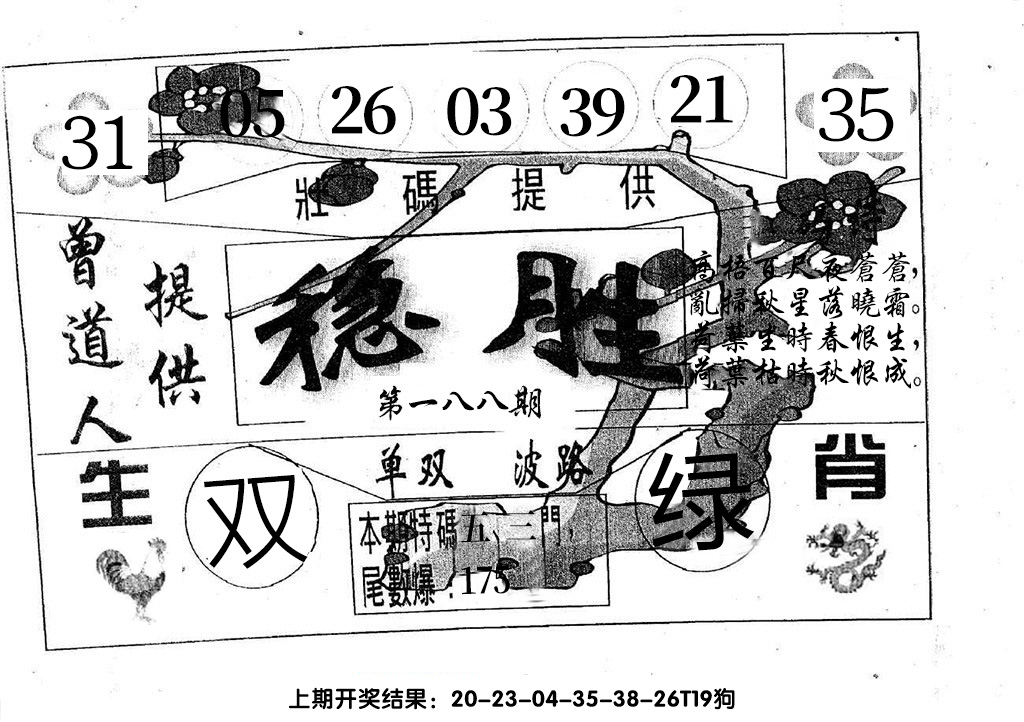 31 05 26 03 39 21 35
壯碼提供
曾道人
提供
稳胜
第一八八期
梧百尺夜蒼蒼，
亂掃秋星落曉霜。
荷葉生時春恨生，
荷葉枯時秋恨成。
生肖
单双
双
波路
绿
本期特碼五、三門，
尾數爆：175
上期开奖结果：20-23-04-35-38-26T19狗